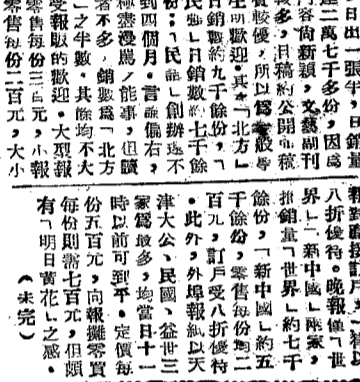 日出一張半,日銷量
達二萬七千多份,因爲
內容尚新穎,文藝副刊
較多,且稿約公開,稿
費較優,所以爲一般學
生所歡迎。其次「北方」
日銷數約九千餘份,「
民語」日銷數約七千餘
份;「民語」創辦還不
到四個月。言論偏右,
極盡漫罵之能事,但讀
者不多,銷數爲「北方
」之半數。其餘均不大
受報販的歡迎。大型報
零售每份三百元,小報
零售每份二百元,大小
報對直接訂戶,一律以
八折優待。晚報僅「世
界」「新中國」兩家,
推銷量「世界」約七千
餘份,「新中國」約五
千餘份,零售每份均二
百元,訂戶受八折優待
。此外,外埠報紙以天
津大公、民國、益世三
家爲最多,均當日十一
時以前可到平。定價每
份五百元,向報攤零買
每份則需七百元,但頗
有「明日黃花」之感。
(未完)